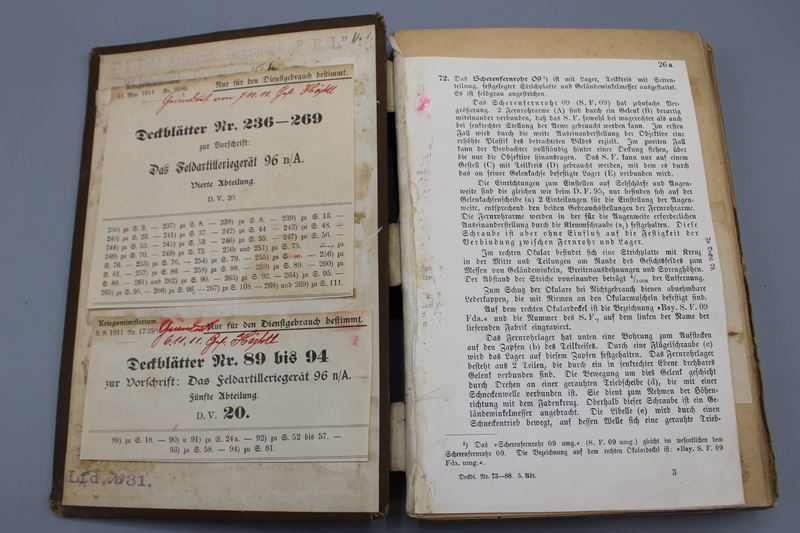 Kriegsministerium.
11. Mai 1911. Nr.
Nur für den Dienstgebrauch bestimmt.
Deckblätter Nr. 236—269
zur Vorschrift:
Das Feldartilleriegerät 96 n/A.
Vierte Abteilung.
D. V. 20.
236) zu S. 7. — 237) zu S. 8. — 238) zu S. 8. — 239) zu S. 13. —
240) zu S. 23. — 241) zu S. 37. — 242) zu S. 44 — 243) zu S. 48. —
244) zu S. 53. — 245) zu S. 53. — 246) zu S. 55. — 247) zu S. 56. —
248) zu S. 70. — 249) zu S. 75. — 250) und 251) zu S. 75. —
S. 76. — 253) zu S. 76. — 254) zu S. 79. — 255) zu — 256) zu
S. 81. — 257) zu S. 86. — 258) zu S. 88. — 259) zu S. 89. — 260) zu
S. 89. — 261) und 262) zu S. 90. — 263) zu S. 92. — 264) zu S. 95. —
265) zu S. 95. — 266) zu S. 96. — 267) zu S. 108. — 268) und 269) zu S. 111.
Kriegsministerium.
9. 8. 1911 Nr.
Nur für den Dienstgebrauch bestimmt.
6.11.11.
Deckblätter Nr. 89 bis 94
zur Vorschrift: Das Feldartilleriegerät 96 n/A.
Fünfte Abteilung.
D. V. 20.
89) zu S. 18. — 90) u 91) zu S. 24a. — 92) zu S. 52 bis 57. —
93) zu S. 58. — 94) zu S. 81.
Lfd. № 31.
26a
72. Das Scherenfernrohr 09¹) ist mit Lager, Teilkreis mit Seiten-
teilung, festgelegter Strichplatte und Geländewinkelmesser ausgestattet.
Es ist feldgrau angestrichen.
Das Scherenfernrohr 09 (S. F. 09) hat zehnfache Ver-
größerung. 2 Fernrohrarme (A) sind durch ein Gelenk (B) derartig
miteinander verbunden, daß das S. F. sowohl bei wagerechter als auch
bei senkrechter Stellung der Arme gebraucht werden kann. Im ersten
Fall wird durch die weite Auseinanderstellung der Objektive eine
erhöhte Plastik des betrachteten Bildes erzielt. Im zweiten Fall
kann der Beobachter vollständig hinter einer Deckung stehen, über
die nur die Objektive hinausragen. Das S. F. kann nur auf einem
Gestell (C) mit Teilkreis (D) gebraucht werden, mit dem es durch
das an seiner Gelenkachse befestigte Lager (E) verbunden wird.
Die Einrichtungen zum Einstellen auf Sehschärfe und Augen-
weite sind die gleichen wie beim D. F. 95, nur befinden sich auf der
Gelenkachsenscheibe (a) 2 Einteilungen für die Einstellung der Augen-
weite, entsprechend den beiden Gebrauchsstellungen der Fernrohrarme.
Die Fernrohrarme werden in der für die Augenweite erforderlichen
Auseinanderstellung durch die Klemmschraube (a₁) festgehalten. Diese
Schraube ist aber ohne Einfluß auf die Festigkeit der
Verbindung zwischen Fernrohr und Lager.
Im rechten Okular befindet sich eine Strichplatte mit Kreuz
in der Mitte und Teilungen am Rande des Gesichtsfeldes zum
Messen von Geländewinkeln, Breitenausdehnungen und Sprenghöhen.
Der Abstand der Striche voneinander beträgt ⁴/₁₀₀₀ der Entfernung.
Zum Schutz der Okulare bei Nichtgebrauch dienen abnehmbare
Lederkappen, die mit Riemen an den Okularmuscheln befestigt sind.
Auf dem rechten Okulardeckel ist die Bezeichnung »Bay. S. F. 09
Fda.« und die Nummer des S. F., auf dem linken der Name der
liefernden Fabrik eingraviert.
Das Fernrohrlager hat unten eine Bohrung zum Aufstecken
auf den Zapfen (b) des Teilkreises. Durch eine Flügelschraube (c)
wird das Lager auf diesem Zapfen festgehalten. Das Fernrohrlager
besteht aus 2 Teilen, die durch ein in senkrechter Ebene drehbares
Gelenk verbunden sind. Die Bewegung um dies Gelenk geschieht
durch Drehen an einer gerauhten Triebscheibe (d), die mit einer
Schneckenwelle verbunden ist. Sie dient zum Nehmen der Höhen-
richtung mit dem Fadenkreuz. Oberhalb dieser Schraube ist ein Ge-
ländewinkelmesser angebracht. Die Libelle (e) wird durch einen
Schneckentrieb bewegt, auf dessen Welle sich eine gerauhte Trieb-
¹) Das »Scherenfernrohr 09 umg.« (S. F. 09 umg.) gleicht im wesentlichen dem
Scherenfernrohr 09. Die Bezeichnung auf dem rechten Okulardeckel ist: »Bay. S. F. 09
Fda. umg.«.
Deckbl. Nr. 73—88. 5. Abt.
3